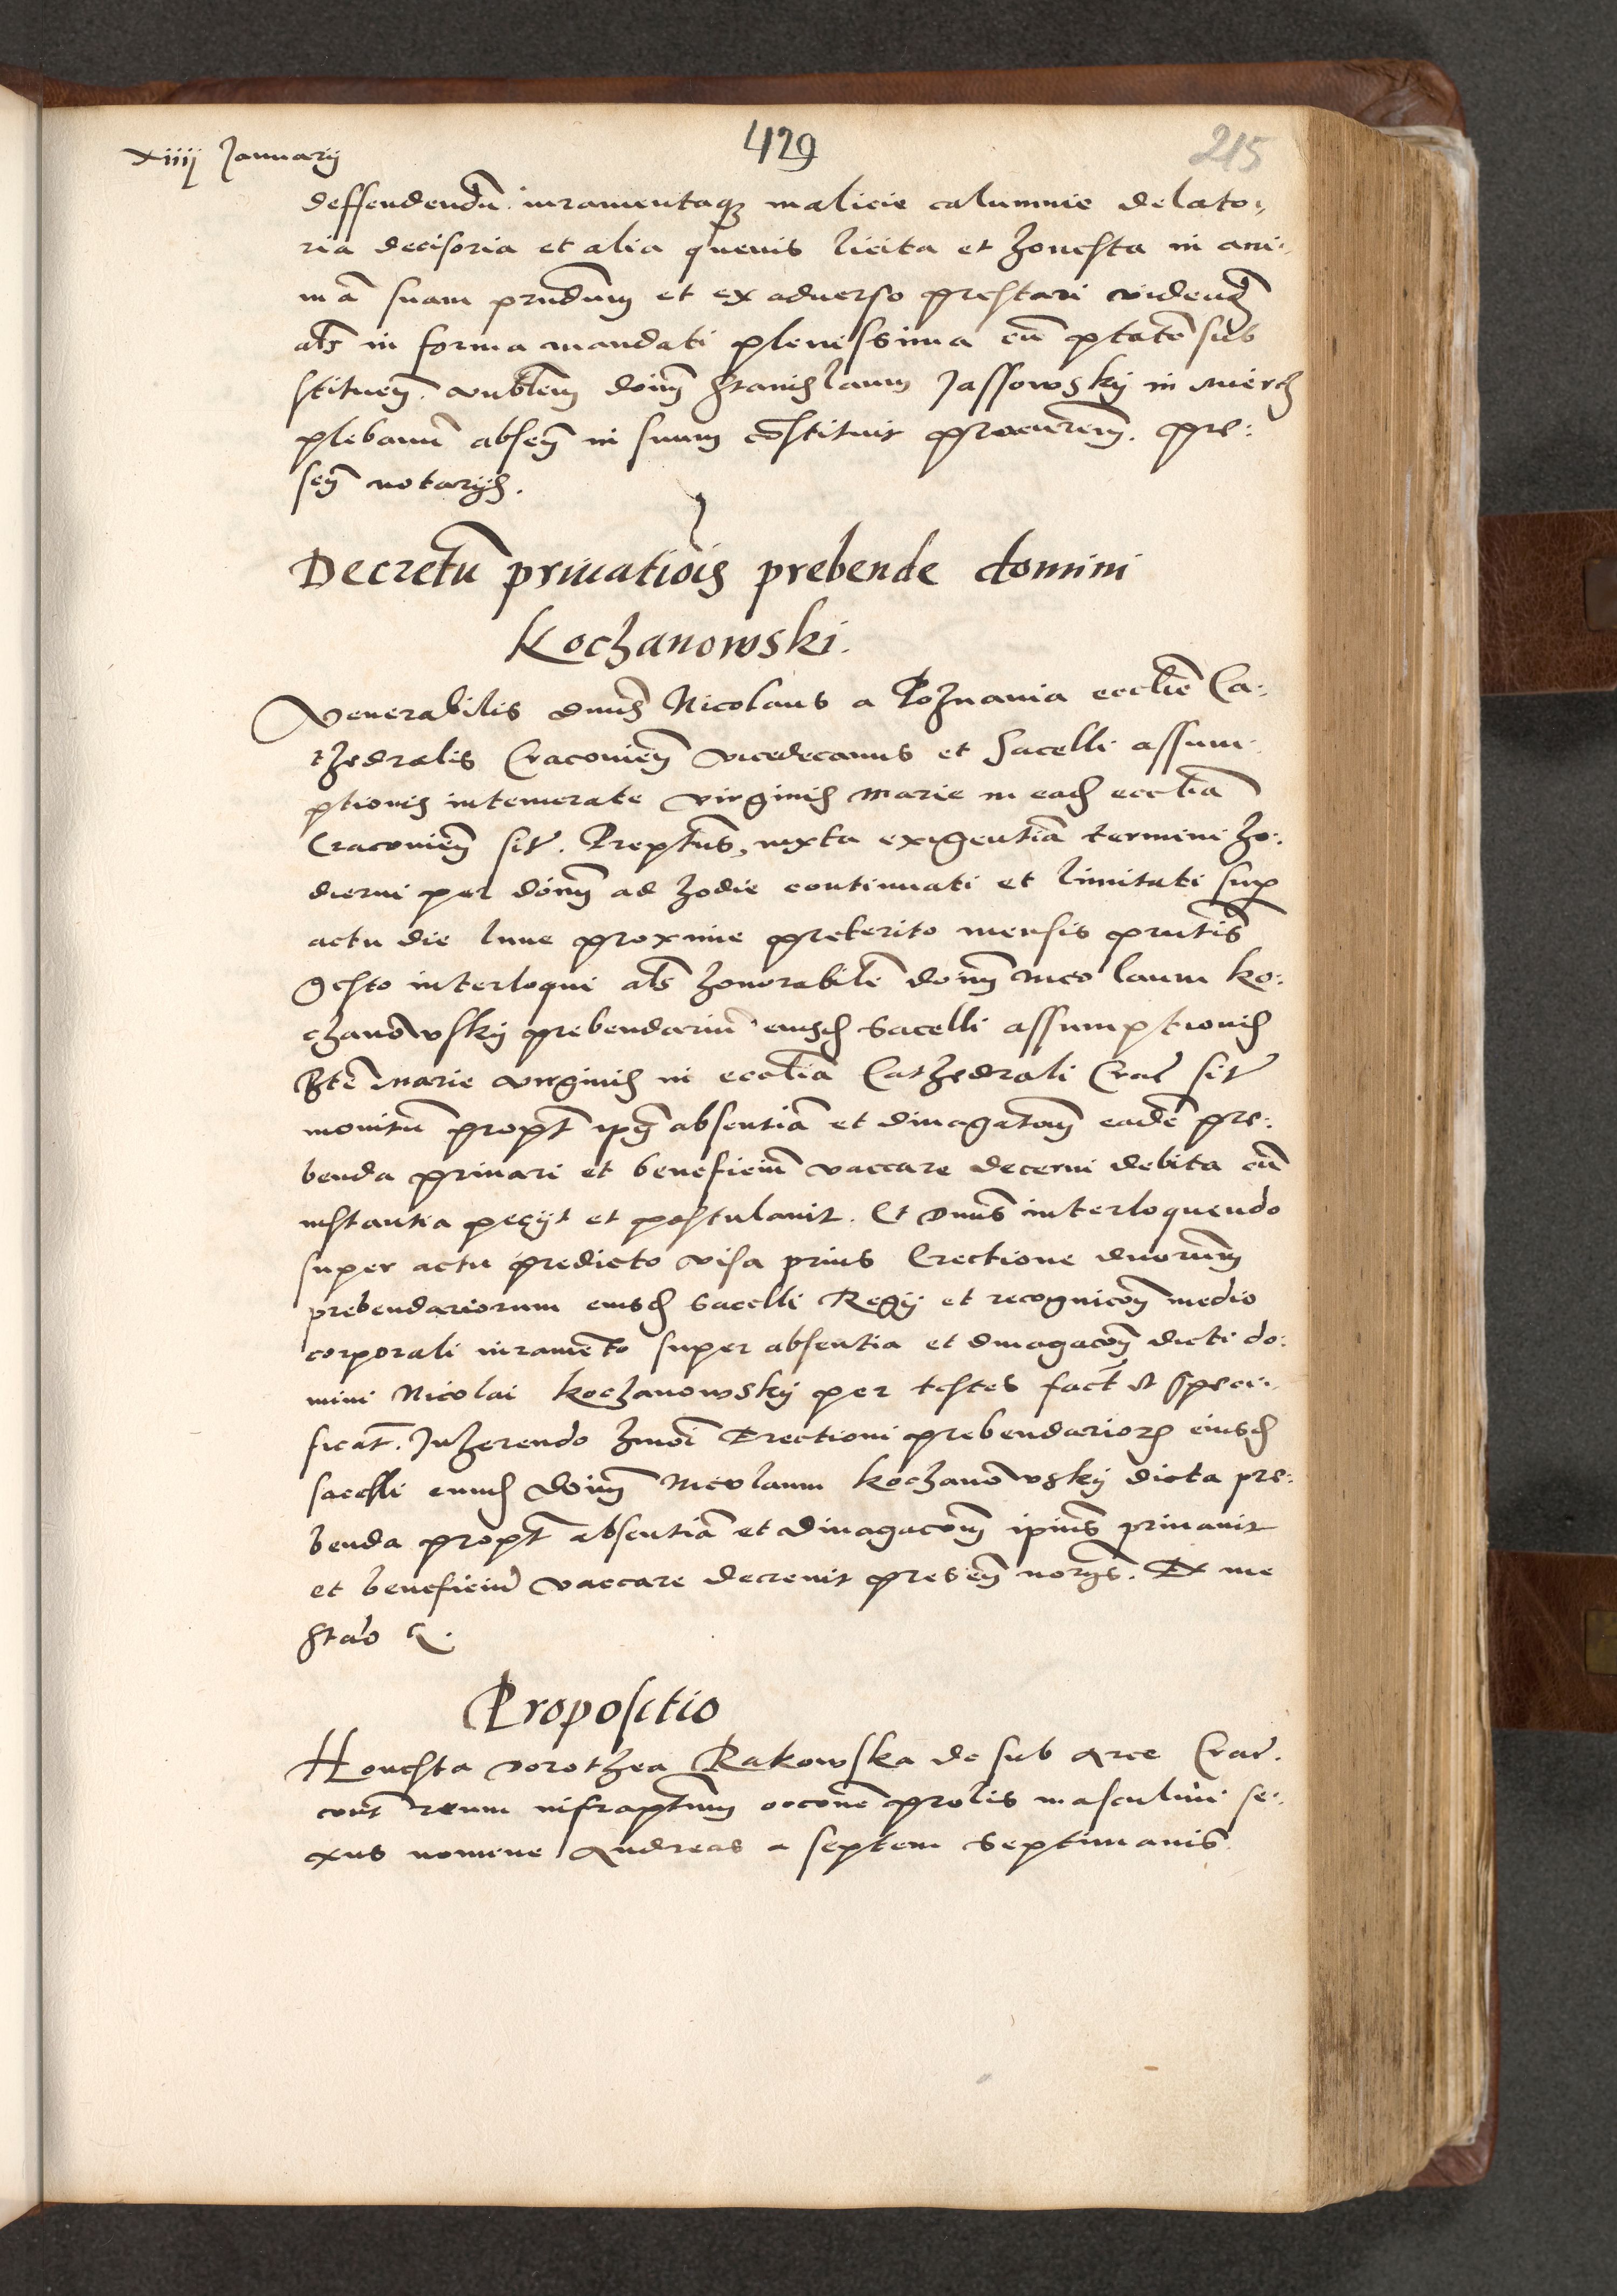 xiiij Januarij
429
215
deffendendū iuramentaqȝ malicie calumnie delato-
ria decisoria et alia quevis licita et honesta in ani-
mā suam prndum et ex adverso prestari videnđ
als in forma mandati plenissima cū ptatē sub
stituen. doim Stanislaum Jassowsky in
plebanū absen in suum cōstituit procurem. pre:
sen notarijs.
Decretū privatiōis prebende domini
Kochanowski.
Venerabilis dnus Nicolaus a Poznania ecclīe Ca:
thedralis Cracovien vicedecanus et Sacelli assum
ptionis intemerate virginis Marie in eađ ecclīa
Cracovien sit. Preptus, iuxta exigentiā termini ho:
dierni per doim ad hodie continuati et limitati sup
actu die lune proxime preterito mensis prntis
gesto interloqui als honorabilē doim Nicolaum Ko:
chanowsky prebendariū eiusđ Sacelli assumptionis
Bte Marie virginis in ecclīa Cathedrali Crac sit
monitū propt ips absentiā et divagatom eadē pre:
benda privari et beneficiū vaccare decerni debita cū
instantia peçijt et postulavit. Et dnus interloquendo
super actu predicto visa prius Erectione duorum
prebendariorum eiusđ Sacelli Regij et recognicom medio
corporali iuramēto super absentia et divagacom dicti do:
mini Nicolai Kochanowsky per testes fact et speci:
ficat. Inherendo hmōi Erectioni prebendarioꝝ eiusđ
sacelli eunđ doim Nicolaum Kochanowsky dicta pre:
benda propt absentiā et divagacom ipius privavit
et beneficiū vaccare decrevit presen norijs. Et me
Stāo
Propositio
Honesta Dorothea Rakowska de sub arce Crac.
cont reum infraptum prolis masculini se:
xus nomine Andreas a septem septimanis